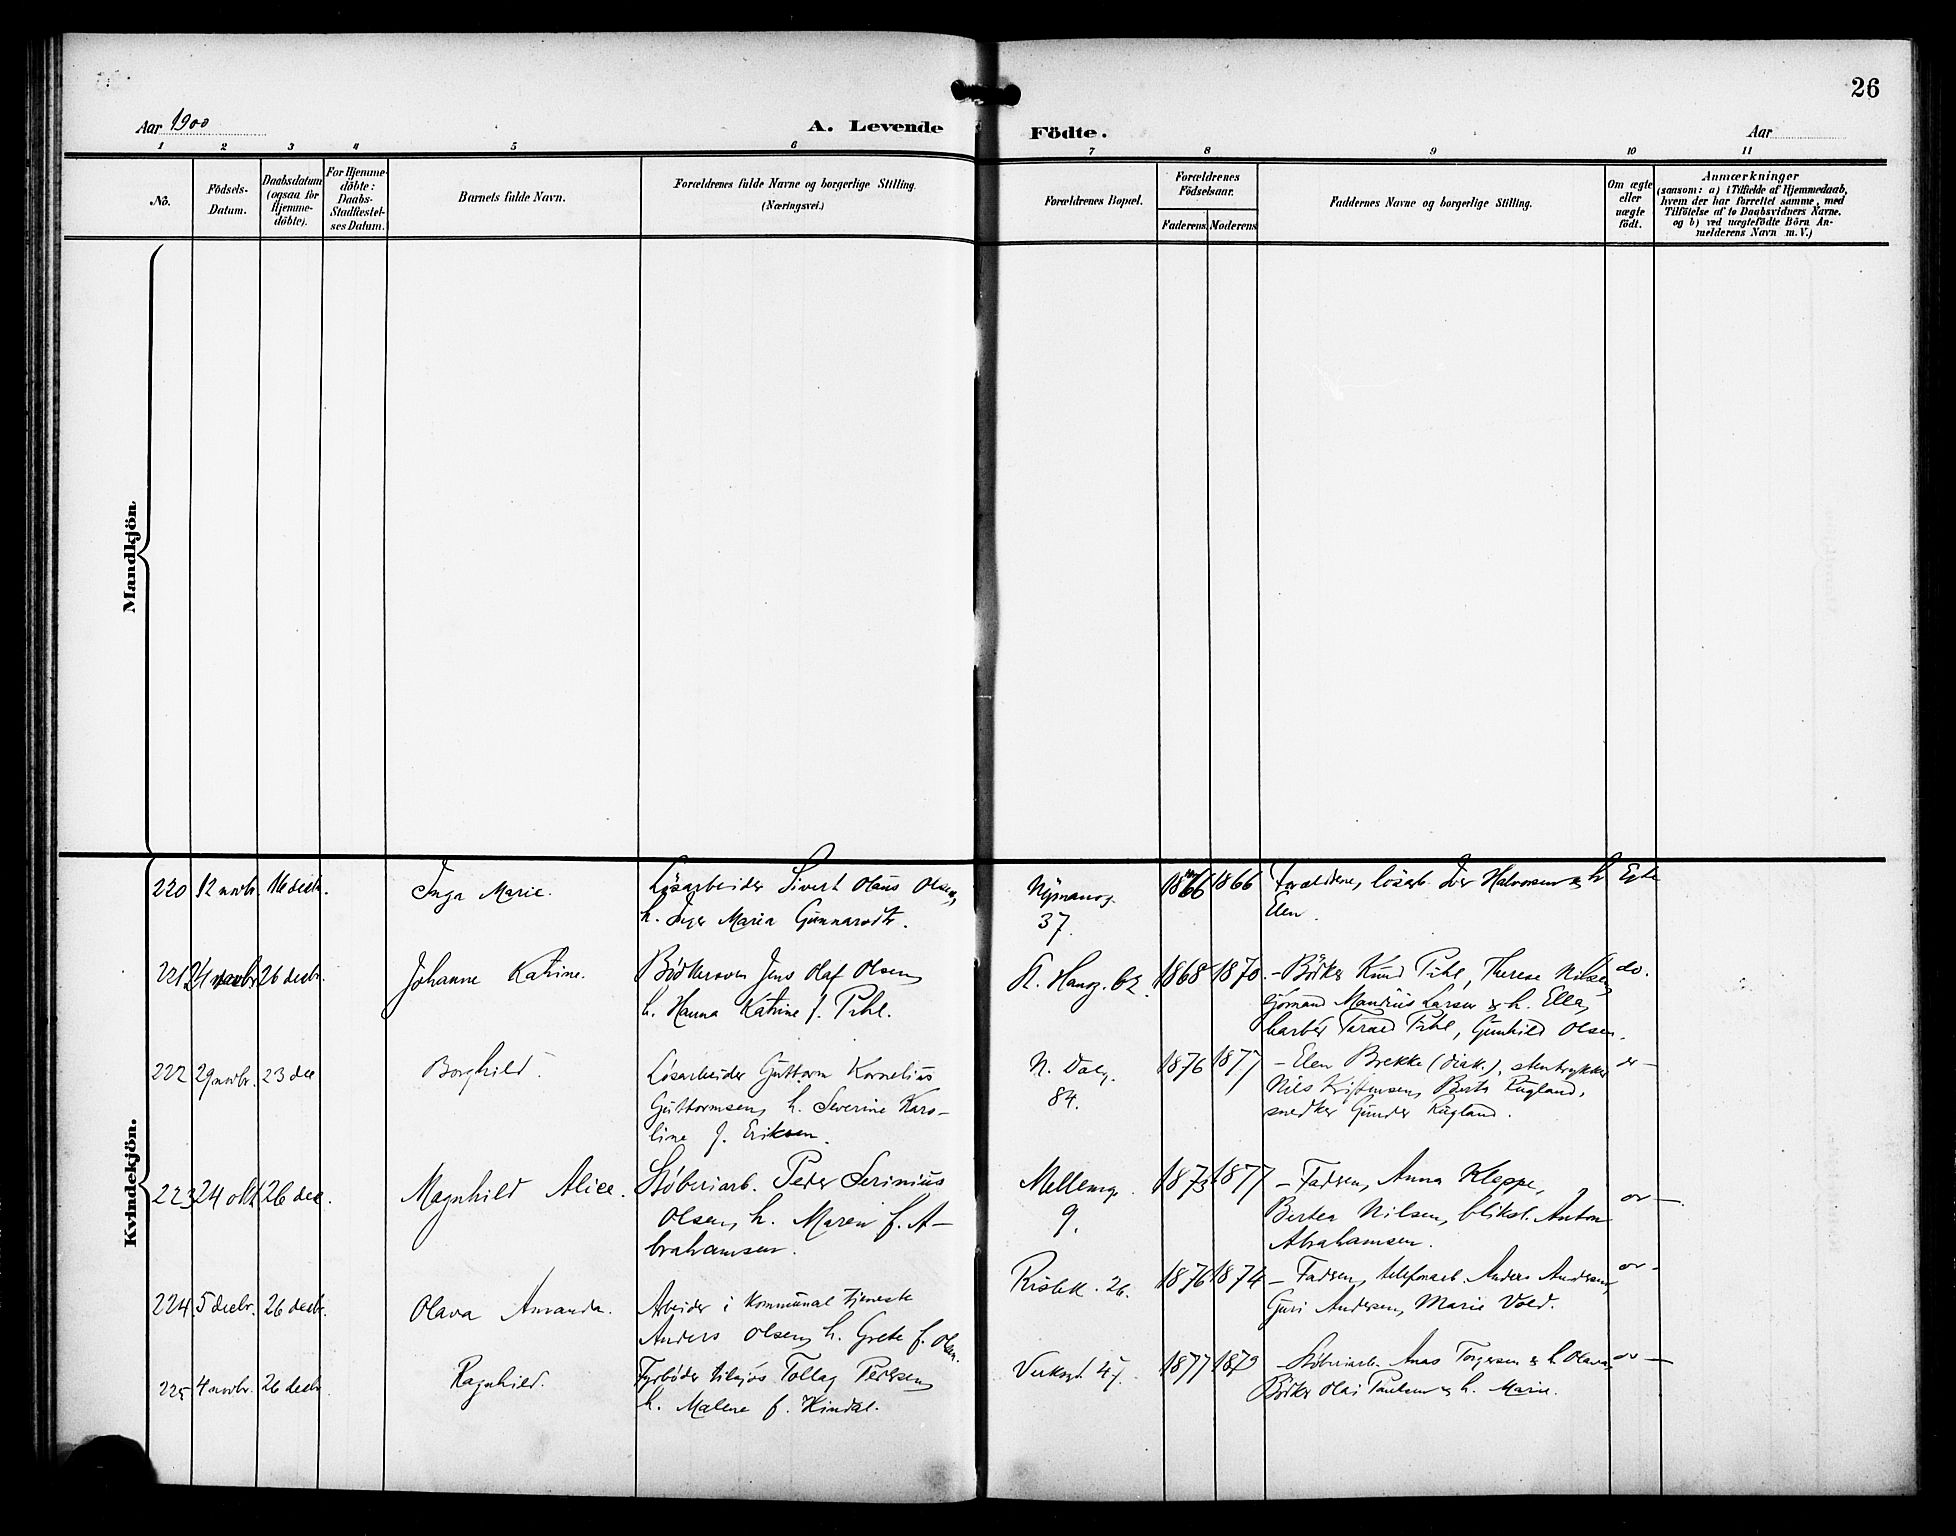 Aar 1900
A. Levende
Födte.
Aar
26
1
2
3
4
5
6
7
8
9
10
11
No.
Födsels-
Datum.
Daabsdatum
(ogsaa for
Hjemme-
döbte).
For Hjemme-
döbte:
Daabs-
Stadfæstel-
ses Datum.
Barnets fulde Navn.
Forældrenes fulde Navne og borgerlige Stilling.
(Næringsvei.)
Forældrenes Bopæl.
Forældrenes
Födselsaar.
Faderens
Moderens
Faddernes Navne og borgerlige Stilling.
Om ægte
eller
uægte
födt.
Anmærkninger
(saasom: a) i Tilfælde af Hjemmedaab,
hvem der har forrettet samme, med
Tilföielse af to Daabsvidners Navne.
og b) ved uægtefödte Börn An-
melderens Navn m. V.)
Mandkjön.
Kvindekjön.
220 12 novbr. 16 decbr. Inga Marie.
Lösarbeider Sivert Olaus Olsen,
h. Inger Maria Gunnarsdtr.
37.
1866 1866
Forældrene, lösarb. Iver Halvorsen & h
Elen.
221 21 novbr 26 decbr. Johanne Katrine.
Jens Olaf Olsen,
h. Hanna Katrine f. Pihl.
K. Hansg. 62. 1868 1870
- Bödker Knud Pihl, Therese Nilsen, do.
Larsen & h. Ella,
Pihl, Gunhild Olsen.
222 29 novbr. 23 dec Borghild.
Lösarbeider Guttorm Kornelius
Guttormsen, h. Severine Karo-
line f. Eriksen.
N. Dalg.
84.
1876 1877
- Elen Brekke (diak.), stentrykker
Nils Kristensen, Berta Rugland,
snedker Gunder Rugland.
223 24 okt. 26 dec. Magnhild Alice.
Støberiarb. Peder Serinius
Olsen, h. Maren f. A-
brahamsen.
Mellemg.
9.
1873 1877
- Faderen, Anna Kleppe,
Bertea Nilsen, bliksl. Anton
Abrahamsen.
224 5 decbr. 26 decbr. Olava Amanda.
Arbeider i kommunal tjeneste
Anders Olsen, h. Grete f. Olsen.
Risbk. 26. 1876 1874
- Faderen, telefonarb. Anders Andersen,
Guri Andersen, Marie Vold.
225 4 novbr. 26 decbr Ragnhild.
Fyrbøder tilsjøs Tollag Pedersen,
h. Malene f. Hindal.
Verksgd. 47. 1877 1879
- Støberiarb. Torgersen & h. Olava,
Bödker Olai Paulsen & h. Marie.